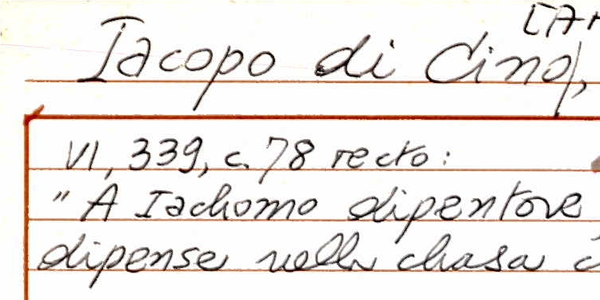 [A
Iacopo di Cino,
VI, 339, c. 78 recto:
"A Iachomo dipentore
dipense nella chasa